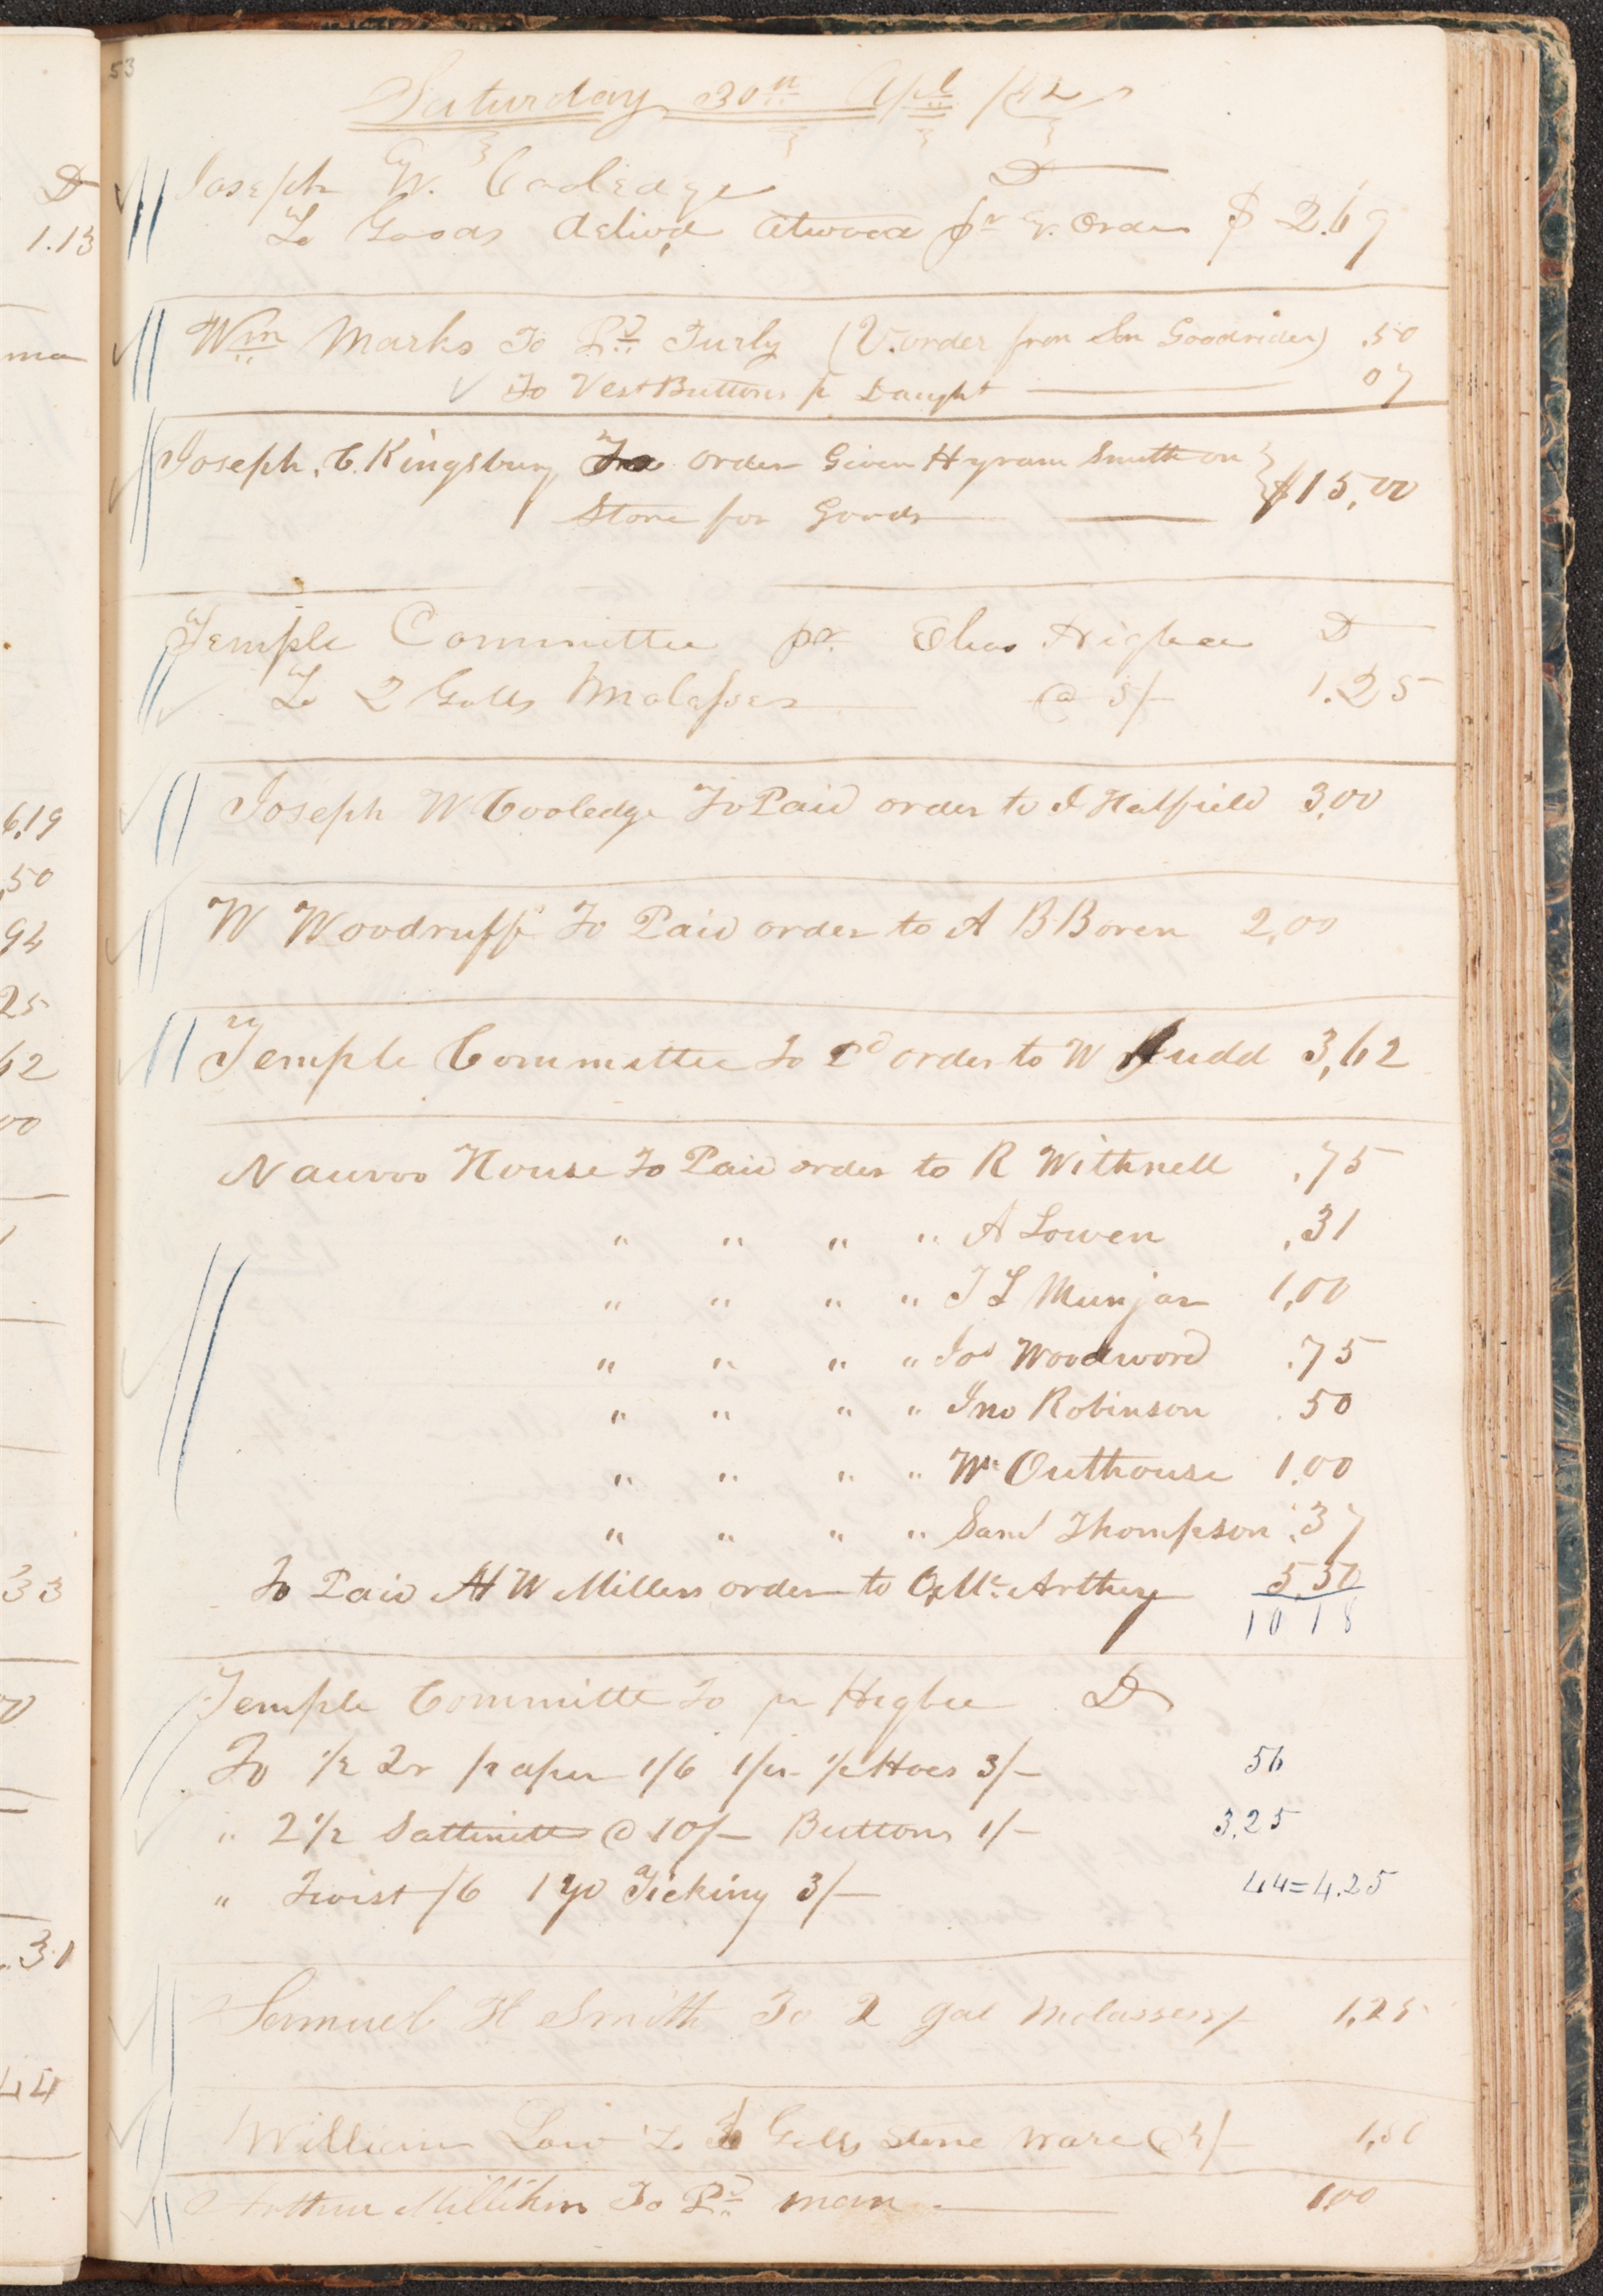 53
Saturday 30th Apl 1842
Joseph W. Cooledge D
To Goods delivd Atwood pr v. Order $ 2.69
Wm Marks To Pd Turly (V. order from Son Goodrider) .50
To Vest Buttons pr Daught 07
Joseph. C. Kingsbury To order Given Hyram Smith on
Store for Goods $15,00
Temple Committee pr. Elias Higbee D
To 2 Galls Molasses @ 5/- 1.25
Joseph W Cooledge To Paid order to I Hatfield 3,00
W Woodruff To Paid order to A B Boren 2,00
Temple Committee To Pd order to W Rudd 3,62
Nauvoo House To Paid order to R Withnell .75
" " " " A Lowen .31
" " " " J L Munjar 1,00
" " " " Jos Woodword .75
" " " " Jno Robinson .50
" " " " Wm Outhouse 1.00
" " " " Saml Thompson .37
To Paid H W Millers order to Mc Arthur 5.50
10 18
Temple Committe To pr Higbee D
To 1/2 Qr paper 1/6 1 pr Hoes 3/- 56
" 2 1/2 Sattinett @ 10/- Buttons 1/- 3.25
" Twist /6 1 yd Ticking 3/- 44=4.25
Samuel H Smith To 2 gal Molasses 5/- 1,25
William Law To Galls Stone Ware @ /- 1,50
Arthur Millikin To Pd man 1,00
D
1.13
6.19
,50
94
25
62
00
33
.31
44